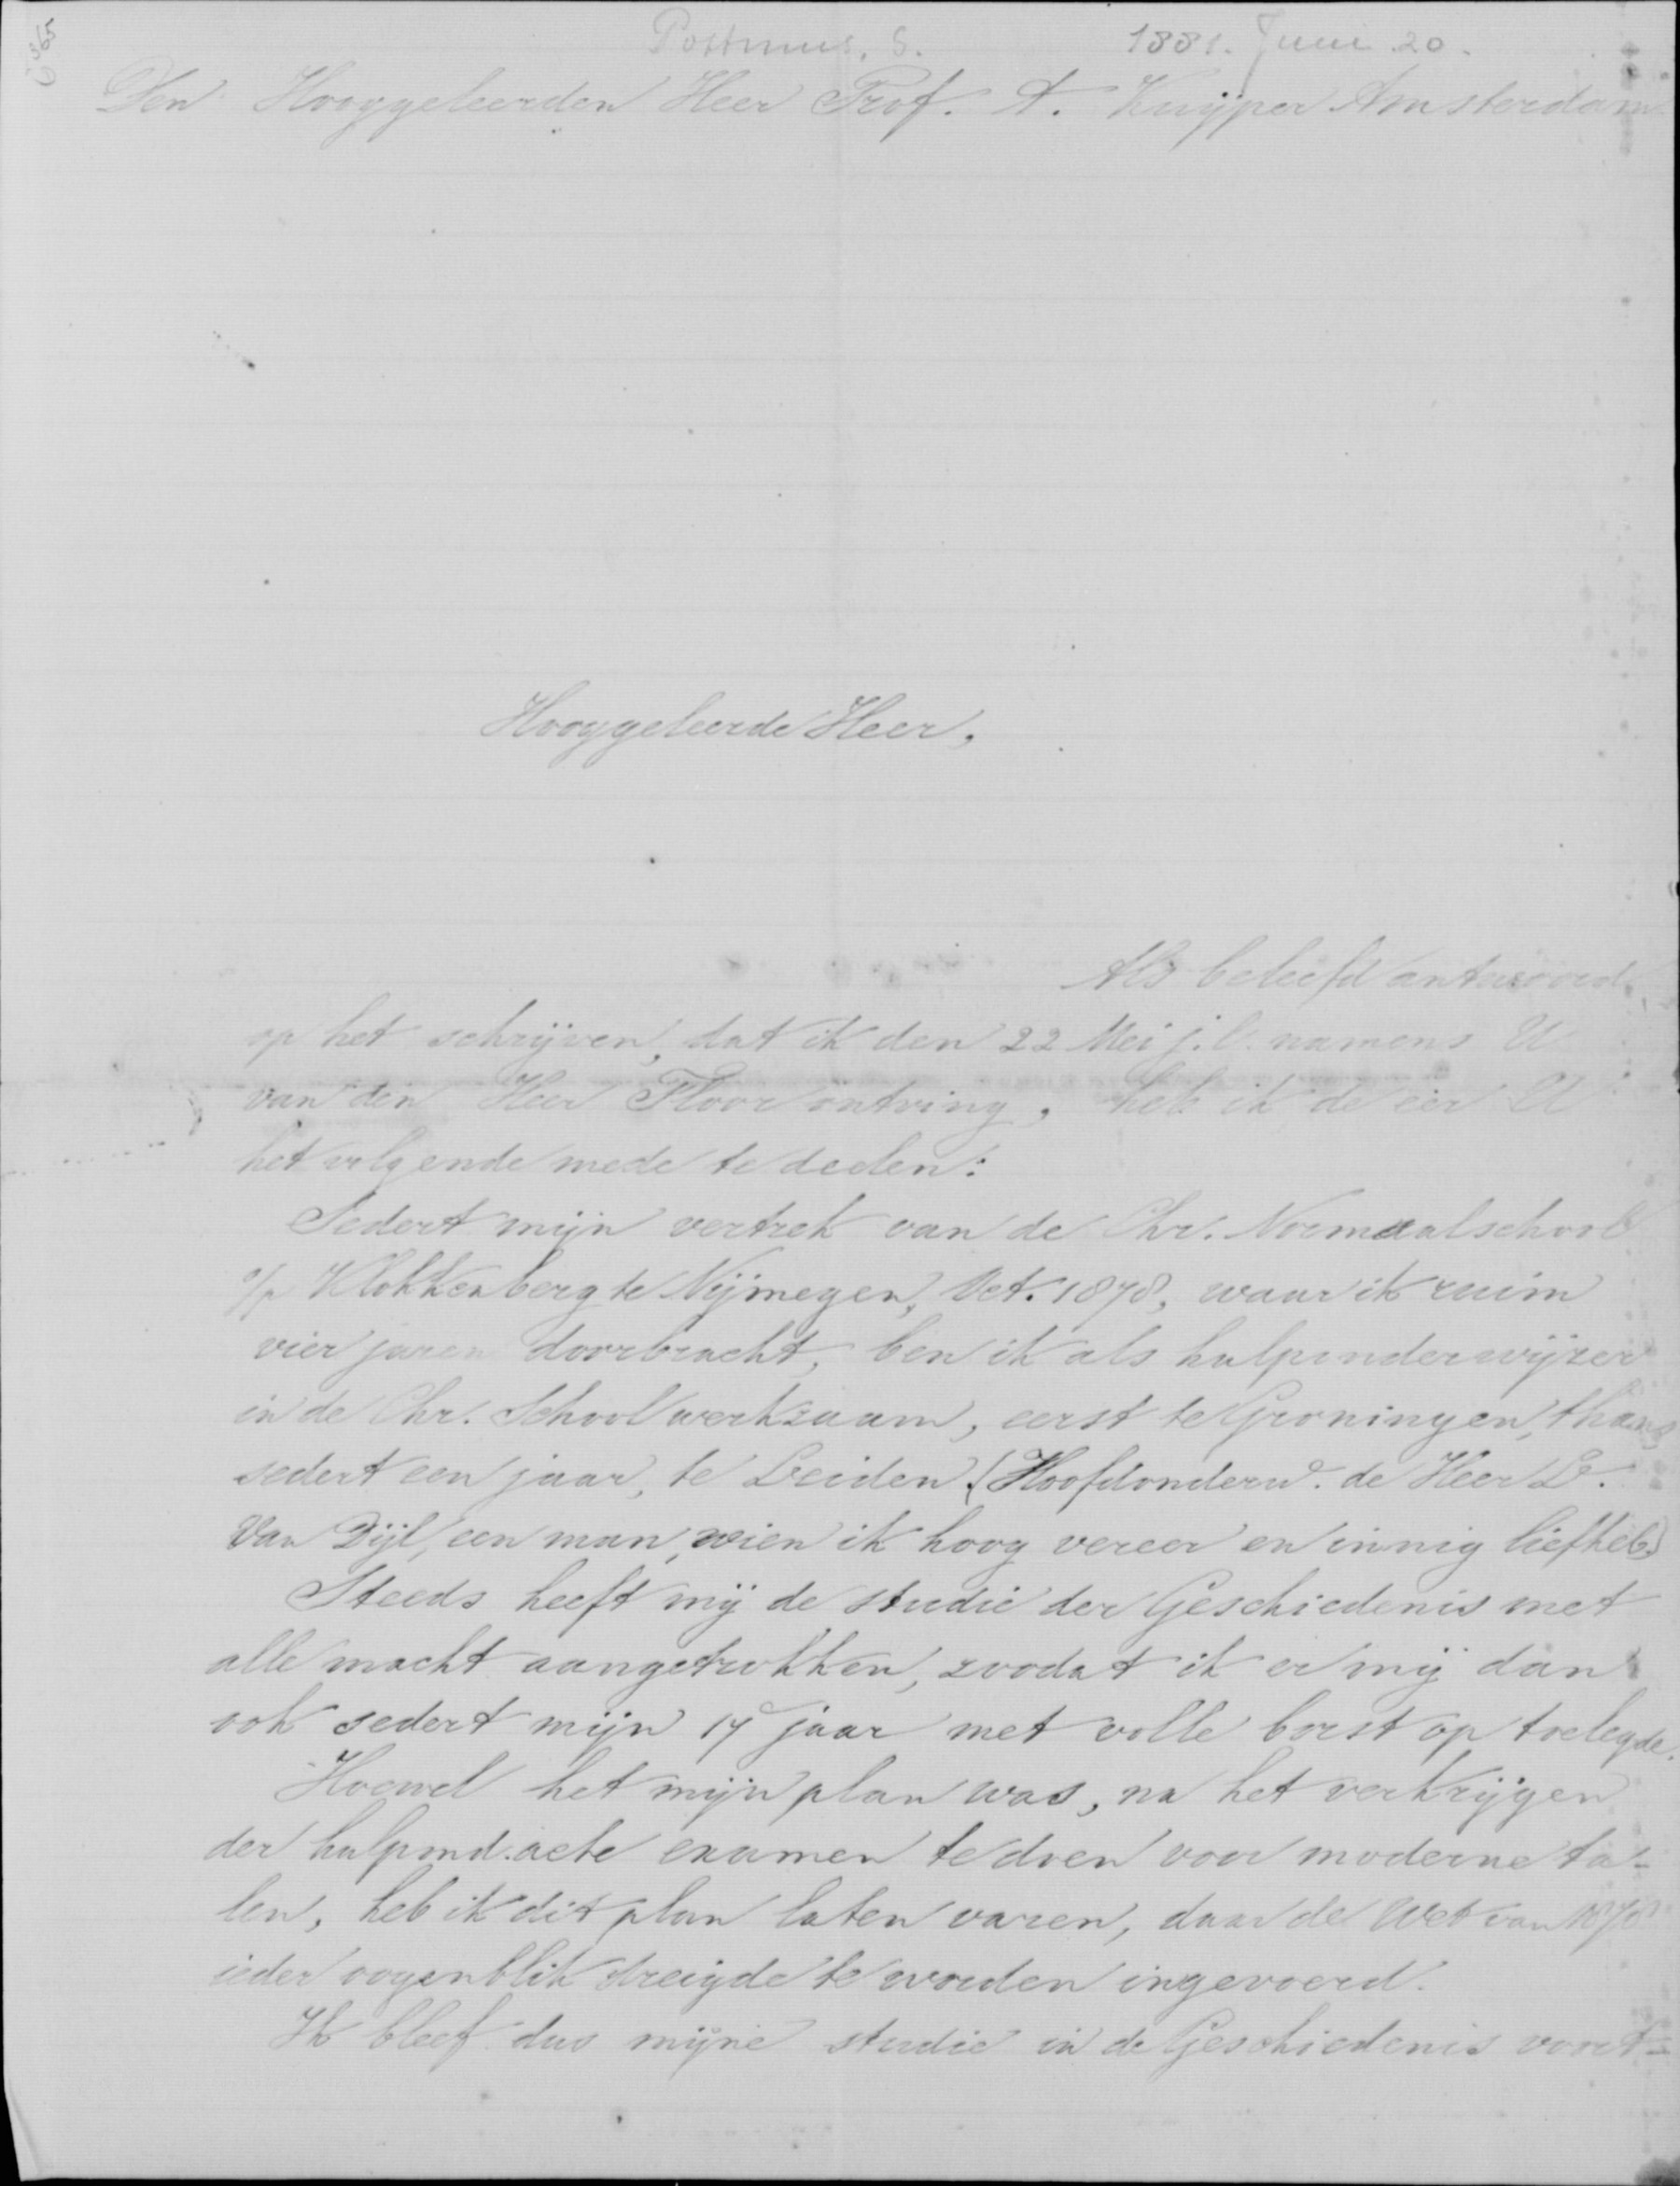 Postmus, S. 1881. Juni 20.
Den Hooggeleerden Heer Prof. A. Kuijper Amsterdam
Hooggeleerde Heer,
Als beleefd antwoord
op het schrijven, dat ik den 22 Mei j.l. namens U
van den Heer Floor ontving, heb ik de eer U
het volgende mede te deelen:
Sedert mijn vertrek van de Chr. Normaalschool
o/p Klokkenberg te Nijmegen, Oct. 1878, waar ik ruim
vier jaren doorbracht, ben ik als hulponderwijzer
in de Chr. School werkzaam, eerst te Groningen, thans
sedert een jaar, te Leiden (Hoofdonderw. de Heer L.
Van Dijl, een man, wien ik hoog vereer en innig liefheb.)
Steeds heeft mij de studie der Geschiedenis met
alle macht aangetrokken, zoodat ik er mij dan
ook sedert mijn 17e jaar met volle borst op toelegde.
Hoewel het mijn plan was, na het verkrijgen
der hulpond.acte examen te doen voor moderne ta-
len, heb ik dit plan laten varen, daar de Wet van 1878
ieder oogenblik dreigde te worden ingevoerd.
Ik bleef dus mijne studie in de Geschiedenis voort-